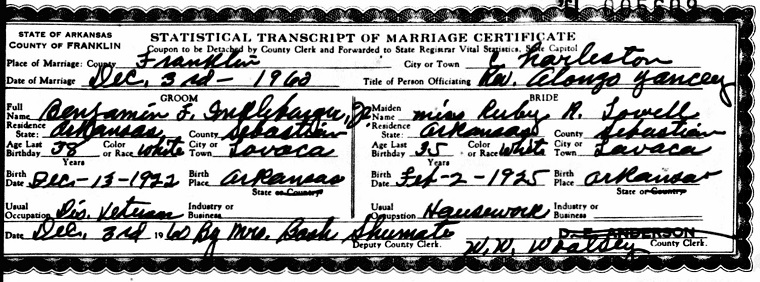 005609
STATE OF ARKANSAS
COUNTY OF FRANKLIN
STATISTICAL TRANSCRIPT OF MARRIAGE CERTIFICATE
Coupon to be Detached by County Clerk and Forwarded to State Registrar Vital Statistics, State Capitol
Place of Marriage: County Franklin City or Town Charleston
Date of Marriage Dec. 3rd - 1960 Title of Person Officiating Rev. Alonzo Yancey
GROOM BRIDE
Full Name Benjamin F. Jr. Maiden Name Miss Ruby A. Lovell
Residence State: Arkansas County Sebastian Residence State: Arkansas County Sebastian
Age Last Birthday 38 Years Color or Race White City or Town Lavaca Age Last Birthday 35 Years Color or Race White City or Town Lavaca
Birth Date Dec-13-1922 Birth Place Arkansas Birth Date Feb-2-1925 Birth Place Arkansas
State or Country State or Country
Usual Occupation Dis. Veteran Industry or Business Usual Occupation Housework Industry or Business
Date Dec. 3rd 1960 By Mrs. Bash Shumate Deputy County Clerk. D. E. ANDERSON
W. W. County Clerk.